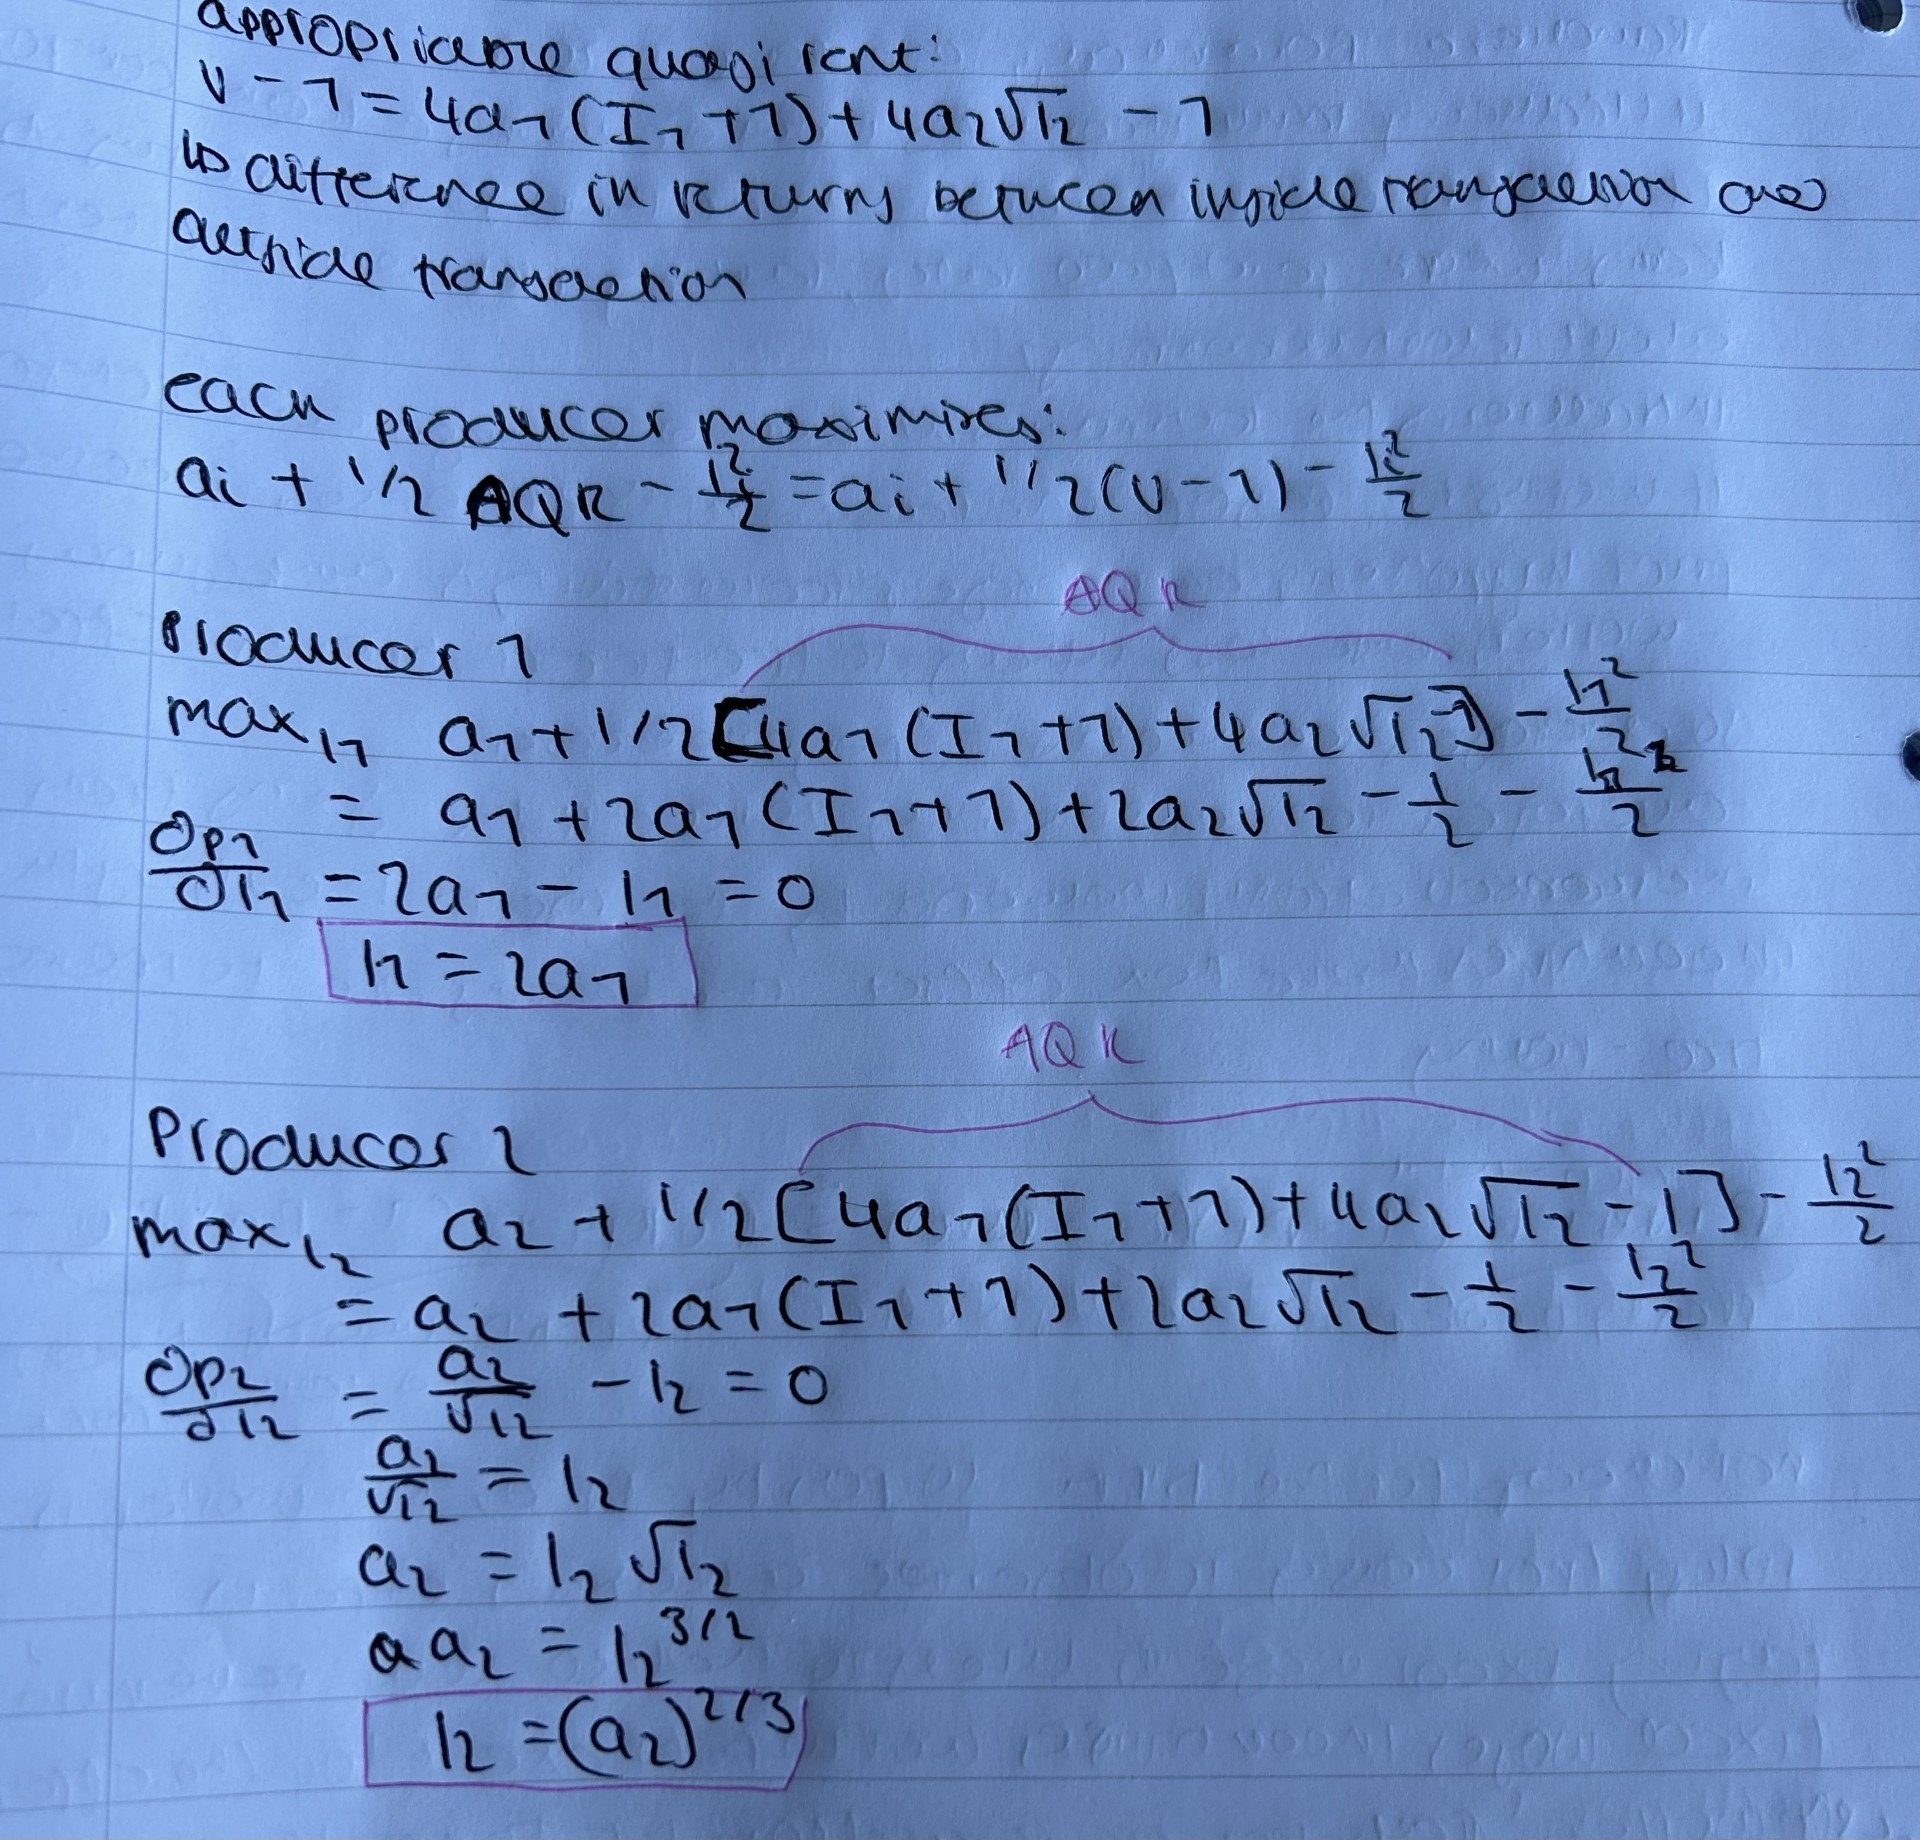 appropriable quasi rent:
V - 1 = 4a1 (I1 + 1) + 4a2√I2 - 1
↳ difference in returns between inside transaction and
outside transaction
each producer maximises:
ai + 1/2 AQR - Ii²/2 = ai + 1/2 (V - 1) - Ii²/2
AQR
Producer 1
max I1 a1 + 1/2 [4a1 (I1 + 1) + 4a2 √I2 - 1] - I1²/2
= a1 + 2a1 (I1 + 1) + 2a2 √I2 - 1/2 - I1²/2
∂p1/∂I1 = 2a1 - I1 = 0
I1 = 2a1
AQR
Producer 2
max I2 a2 + 1/2 [4a1 (I1 + 1) + 4a2 √I2 - 1] - I2²/2
= a2 + 2a1 (I1 + 1) + 2a2 √I2 - 1/2 - I2²/2
∂p2/∂I2 = a2/√I2 - I2 = 0
a2/√I2 = I2
a2 = I2 √I2
a a2 = I2^3/2
I2 = (a2)^2/3